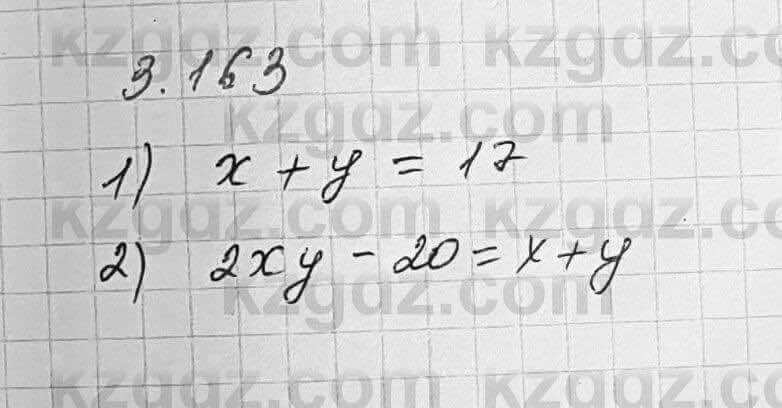 kzgdz.com kzgdz.com
3.163
kzgdz.com
1) x + y = 17
kzgdz.com kzgdz.com
2) 2xy - 20 = x + y
kzgdz.com
kzgdz.com kzgdz.com